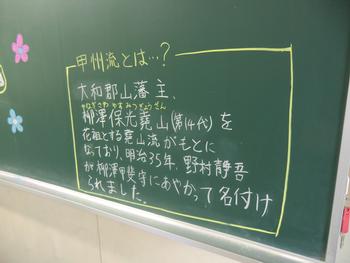 甲州流とは…?
大和郡山藩主、
やなぎさわ やす みつぎょうざん
柳澤保光堯山(第14代)を
花祖とする堯山流がもとに
なっており、明治35年、野村静吾
が柳澤甲斐守にあやかって名付け
られました。